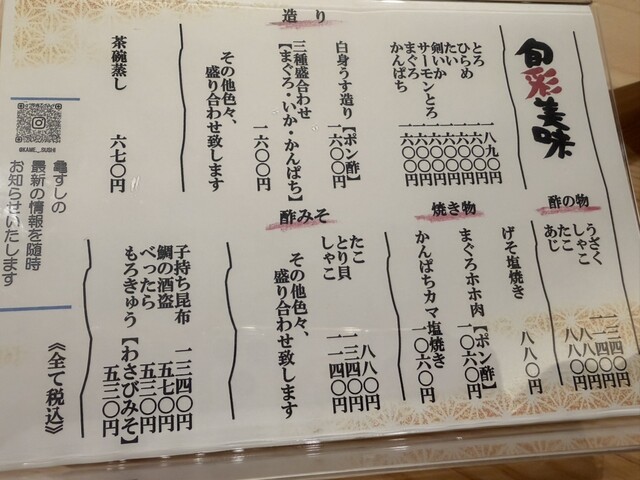 旬彩美味
造り
とろ 一八九〇円
ひらめ 一六〇〇円
たい 一六〇〇円
剣いか 一六〇〇円
サーモンとろ 一六〇〇円
まぐろ 一六〇〇円
かんぱち 一六〇〇円
白身うす造り【ポン酢】 一六〇〇円
三種盛合わせ
【まぐろ・いか・かんぱち】 一六〇〇円
その他色々、
盛り合わせ致します
茶碗蒸し 六七〇円
酢の物
うざく
しゃこ
たこ 八八〇円
あじ 八八〇円
焼き物
げそ塩焼き 八八〇円
まぐろホホ肉【ポン酢】 一〇六〇円
かんぱちカマ塩焼き 一〇六〇円
酢みそ
たこ 八八〇円
とり貝 一三四〇円
しゃこ 一一四〇円
その他色々、
盛り合わせ致します
子持ち昆布 一三四〇円
鯛の酒盗 五七〇円
べったら 五三〇円
もろきゅう【わさびみそ】 五三〇円
《全て税込》
@KAME__SUSHI
亀すしの
最新の情報を随時
お知らせいたします